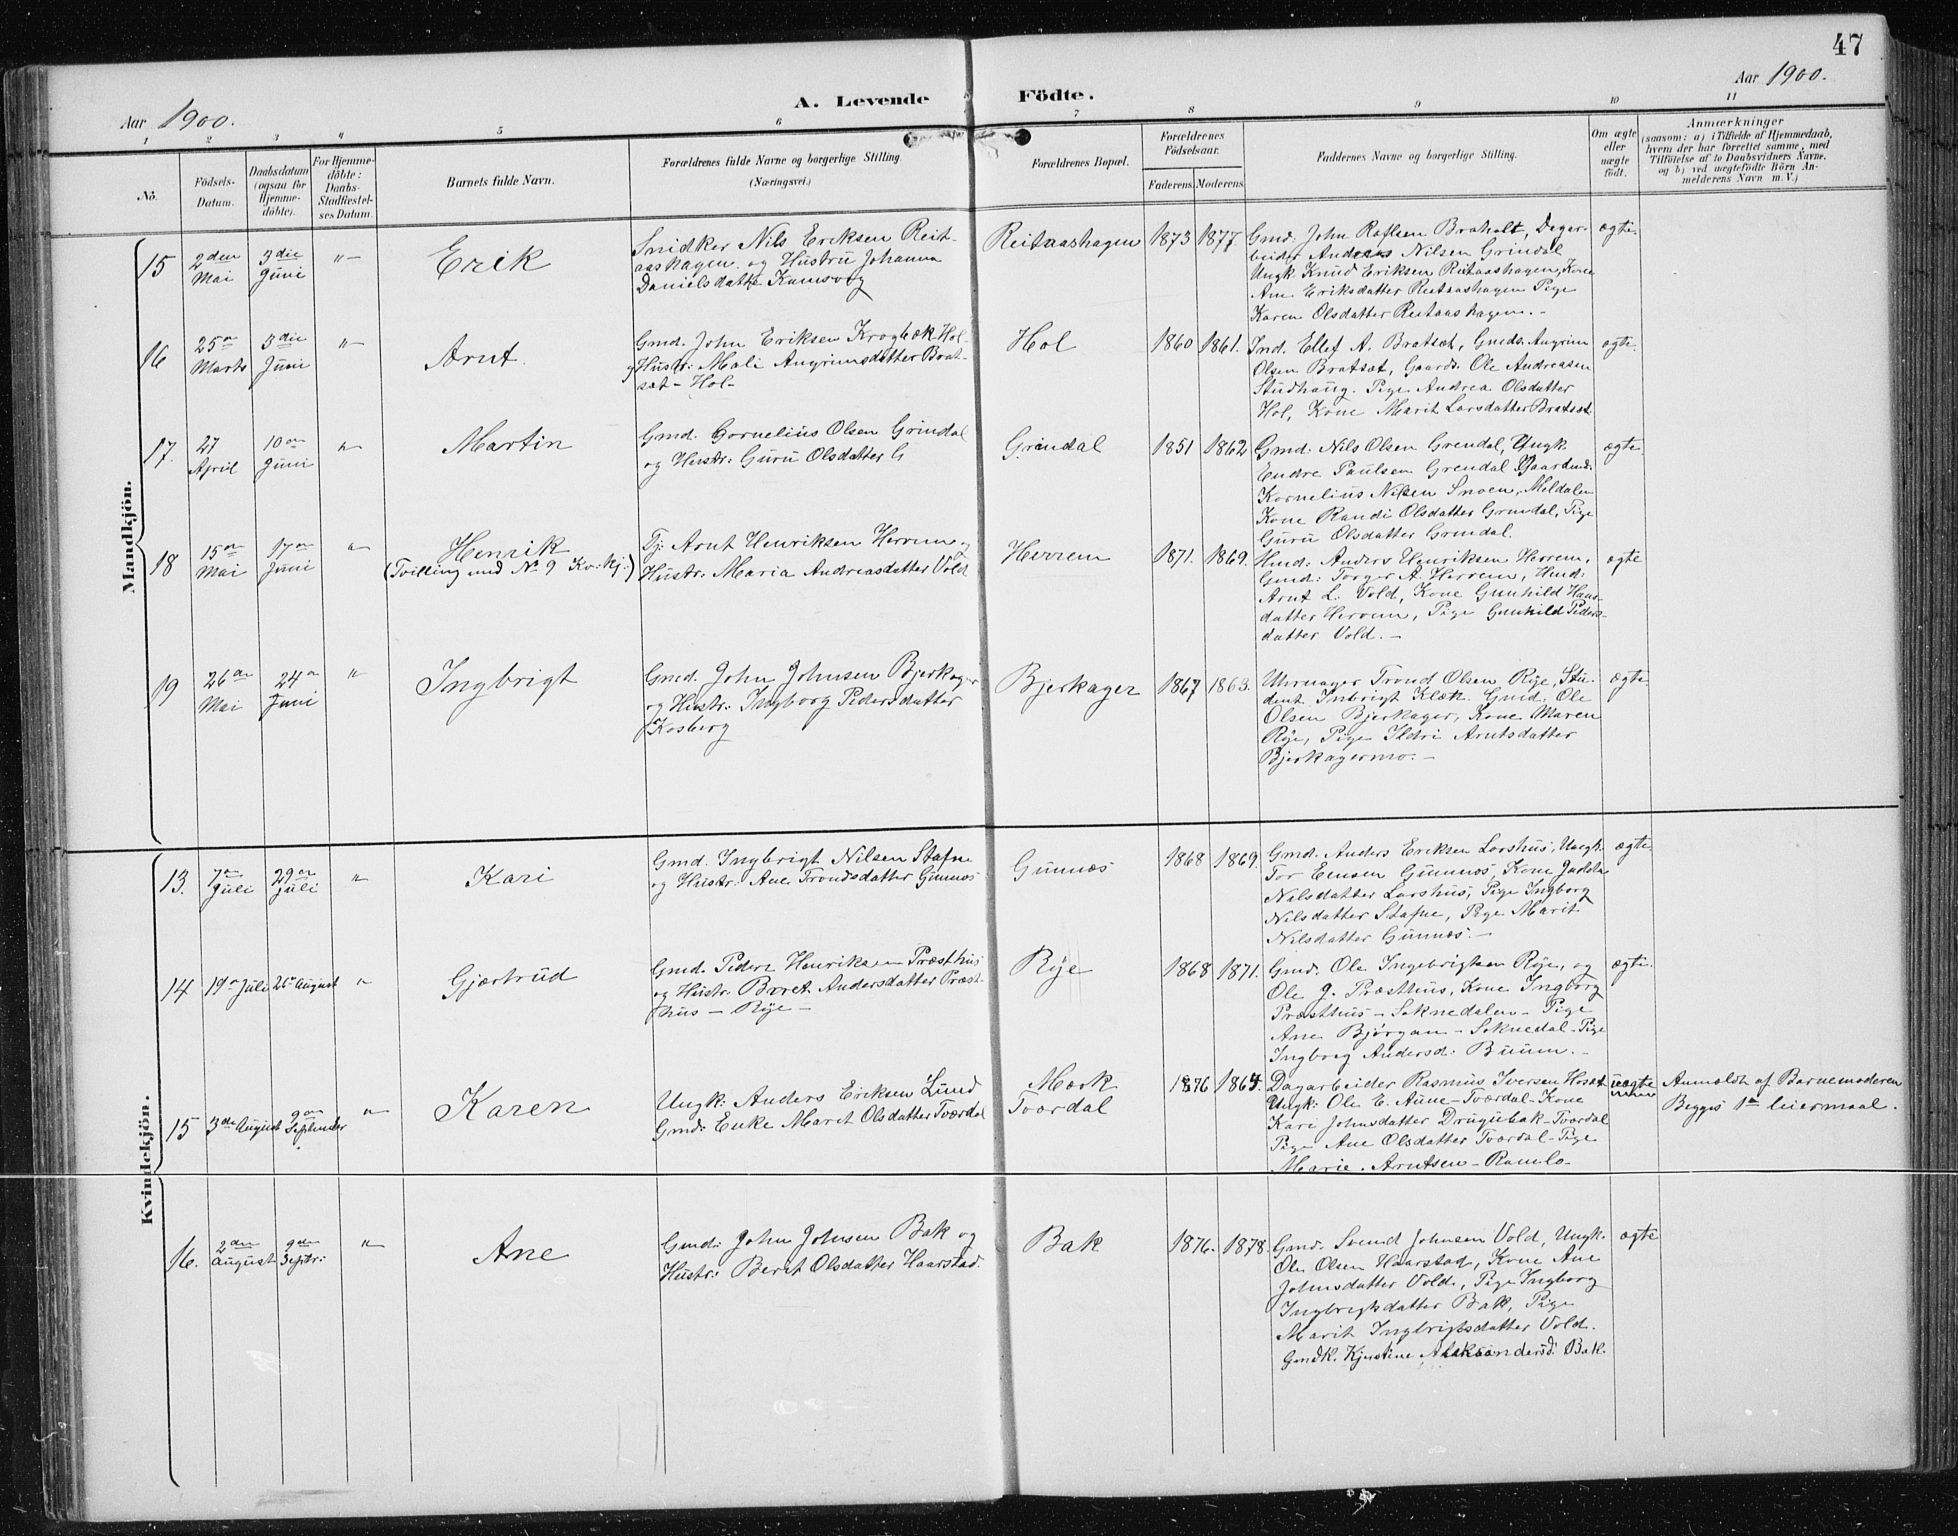 47
Aar 1900.
A. Levende Födte.
Aar 1900.
1 2 3 4 5 6 7 8 9 10 11
No.
Födsels-
Datum.
Daabsdatum
(ogsaa for
Hjemme-
döbte).
For Hjemme-
döbte:
Daabs-
Stadfæstel-
ses Datum.
Barnets fulde Navn.
Forældrenes fulde Navne og borgerlige Stilling.
(Næringsvei.)
Forældrenes Bopæl.
Forældrenes
Födselsaar.
Faderens. Moderens.
Faddernes Navne og borgerlige Stilling.
Om ægte
eller
uægte
födt.
Anmærkninger
(saasom: a) i Tilfælde af Hjemmedaab,
hvem der har forrettet samme, med
Tilföielse af to Daabsvidners Navne,
og b) ved uægtefödte Börn An-
melderens Navn m. V.)
Mandkjön.
15
2den
Mai
3die
Juni
"
Erik
Snidker Nils Eriksen Reit-
aashagen og Hustru Johanna
Danielsdatter Kamsvog
Reitaashagen
1873 1877.
Gmd. John Roffsen Braholt, Dagar-
beider Anders Nilsen Grindal
Ungk. Knud Eriksen Reitaashagen, Kone
Ane Eriksdatter Reitaashagen Pige
Karen Olsdatter Reitaashagen. –
ægte
16
25de
Marts
3die
Juni
"
Arnt.
Gmd. John Eriksen Krogbæk Hol-
og Hustr: Mali Angrimsdatter Brat-
sæt – Hol –
Hol
1860 1861.
Ind. Ellef A. Bratsæt, Gmds. Angrim
Olsen Bratsæt, Gaardb. Ole Andreasen
Studhaug. Pige Andrea Olsdatter
Hol, Kone Marit Larsdatter Bratsæt
ægte.
17.
27
April
10de
Juni
"
Martin
Gmd. Cornelius Olsen Grindal
og Hustr: Guru Olsdatter G
Grindal
1851 1862
Gmd. Nils Olsen Grendal, Ungk.
Endre Paulsen Grendal Gaardmd.
Kornelius Nilsen Snoen, Meldalen
Kone Randi Olsdatter Grindal, Pige
Guru Olsdatter Grindal.
ægte
18
15de
Mai
17de
Juni
"
Henrik
(Tvilling med No 9 Kv: kj:)
Tj: Arnt Henriksen Herrem og
Hustr: Maria Andreasdatter Vold
Herrem
1871. 1869.
Hmd: Anders Henriksen Herrem,
Gmd: Torger A. Herrem, Hmd:
Arnt L. Vold, Kone Gunhild Hans-
datter Herrem, Pige Gunhild Peders-
datter Vold. –
ægte
19
26de
Mai
24de
Juni
"
Ingbrigt
Gmd. John Johnsen Bjerkager
og Hustr: Ingborg Pedersdatter
Kosberg
Bjerkager
1867 1863.
Uhrmager Trond Olsen Rye, Stu-
dent Inbrigt Klæt. Gmd. Ole
Olsen Bjerkager, Kone Maren
Rye, Pige Ildri Arntsdatter
Bjerkagermo. –
ægte.
Kvindekjön.
13.
7de
Juli
29de
Juli
"
Kari
Gmd. Ingbrigt Nilsen Stafne
og Hustr: Ane Trondsdatter Gunnes
Gunnæs
1868 1869.
Gmd. Anders Eriksen Lorshus, Ungk.
Tor Gunnes, Kone
Nilsdatter Lorshus, Pige Ingborg
Nilsdatter Stafne, Pige Marit
Nilsdatter Gunnes. –
ægte.
14
19de Juli
26de August
"
Gjertrud
Gmd. Peder Henriksen Præsthus
og Hustr. Beret Andersdatter Præst-
hus – Rye –
Rye
1868 1871.
Gmd. Ole Ingebrigtsen Rye, og
Ole J. Præsthus, Kone Ingborg
Præsthus – Soknedalen – Pige
Ane Bjørgan – Soknedal – Pige
Ingborg Andersd: Buum. –
ægte.
15
3die August
9de
September
"
Karen
Ungk: Anders Eriksen Lund
Gmd: Enke Marit Olsdatter Tværdal
Mærk
Tværdal
1876 1864.
Dagarbeider Rasmus Iversen Hosæt
Ungk: Ole E. Aune – Tværdal – Kone
Kari Johnsdatter Drugubak – Tværdal
Pige Ane Olsdatter Tværdal – Pige
Marie Arntsen – Ramlo –
uægte
Anmeldt af Barnemoderen
Begges 1ste leiermaal.
16.
2den
August
9den
Septr:
"
Ane
Gmd: John Johnsen Bak og
Hustr: Berit Olsdatter Haarstad.
Bak
1876. 1878.
Gmd. Svend Johnsen Vold, Ungk.
Ole Olsen Haarstad, Kone Ane
Johnsdatter Vold, Pige Ingborg
Ingbrigtsdatter Bak, Pige
Marit Ingbrigtsdatter Vold.
Gmdk. Kjerstine Aleksandersd: Bak.
ægte